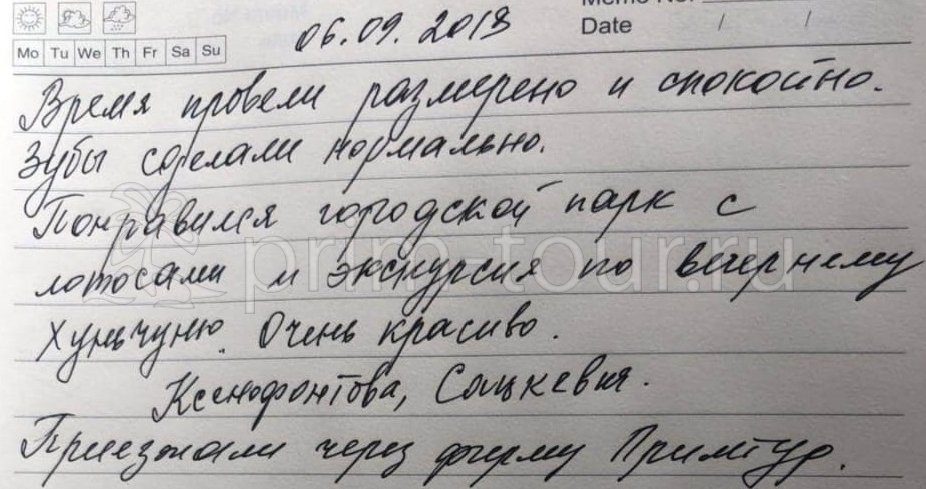 Memo No.
Mo Tu We Th Fr Sa Su
Date / /
06.09.2018
Время провели размерено и спокойно.
Зубы сделали нормально.
Понравился городской парк с
лотосами и экскурсия по вечернему
Хуньчуню. Очень красиво.
Ксенофонтова, Сацкевич.
Приезжали через фирму Примтур.
prim-tour.ru